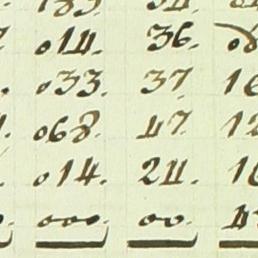 014. 36.
033. 37. 16
068. 47. 12
014. 24. 16
000. 00.